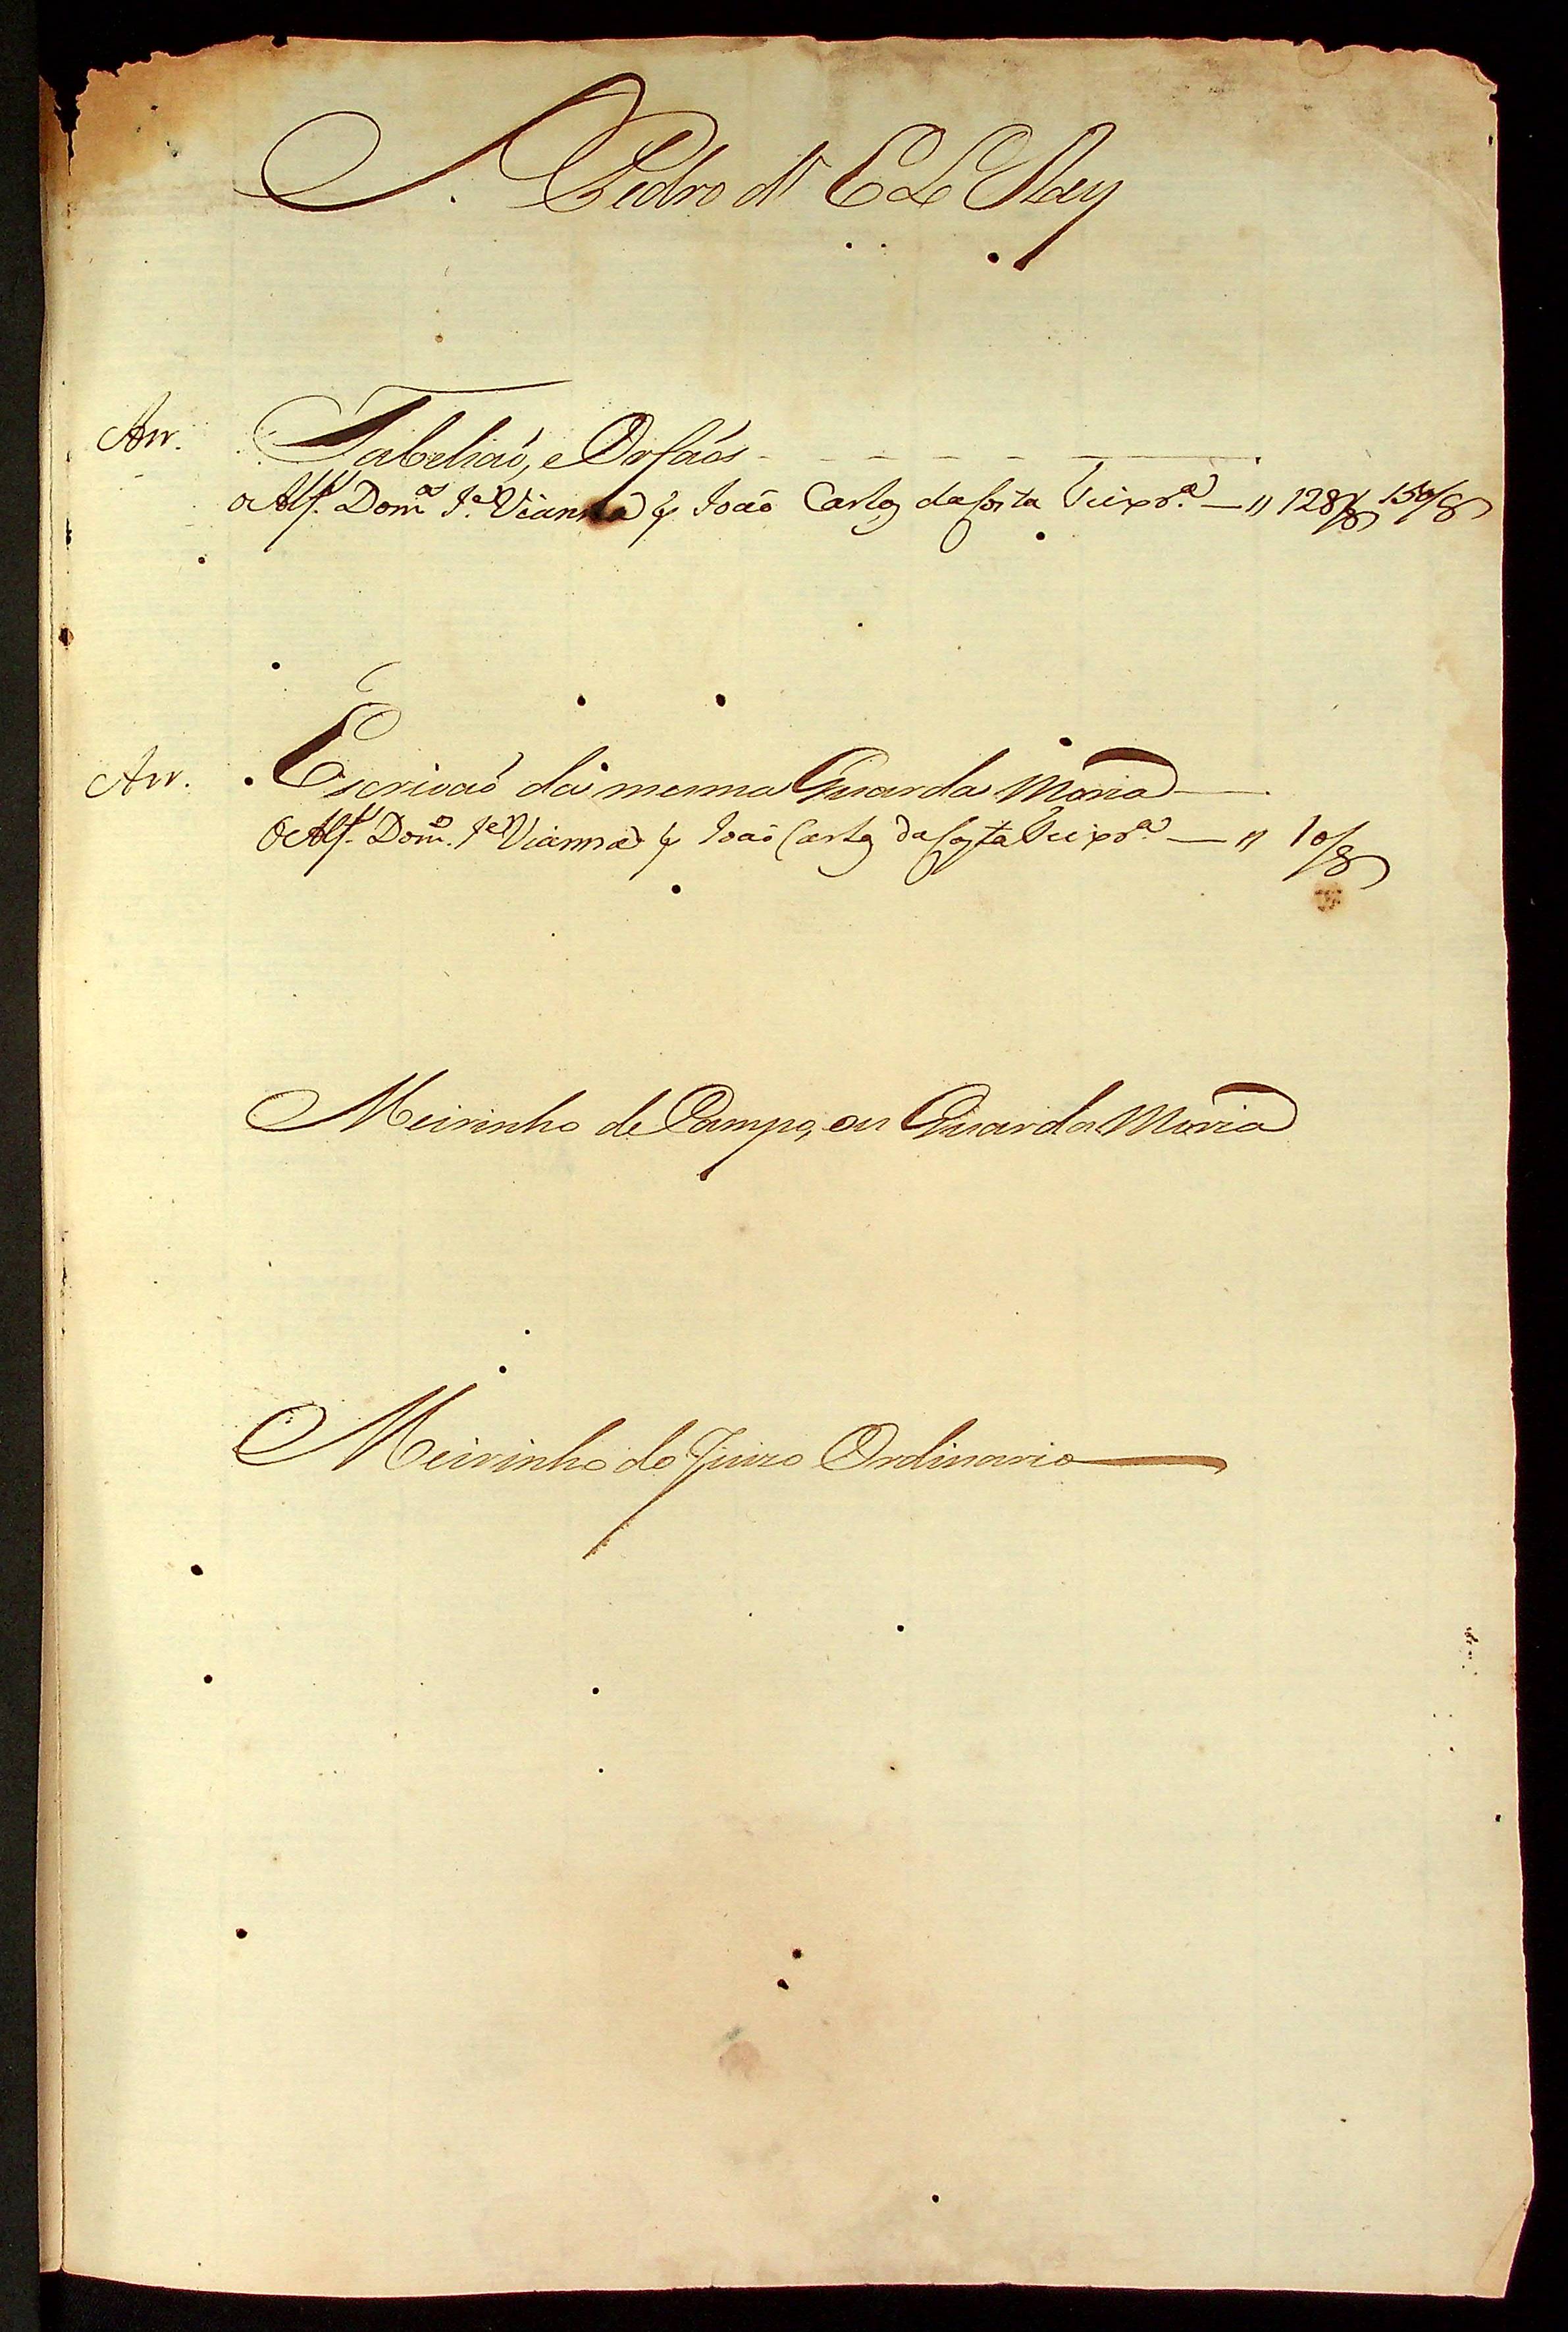 S. Pedro d' EL Rey
Arr. Tabeliaõ, e Orfaõs
o Alf. Dom.os J.e Vianna p João Carlos da Costa Teixr.a — " 128/8 150/8
Arr. Escrivaõ da mesma Guarda Moria
O Alf. Dom.os J.e Vianna p João Carlos da Costa Teixr.a — " 10/8
Meirinho de Campo, ou Guarda Moria
Meirinho do Juizo Ordinario